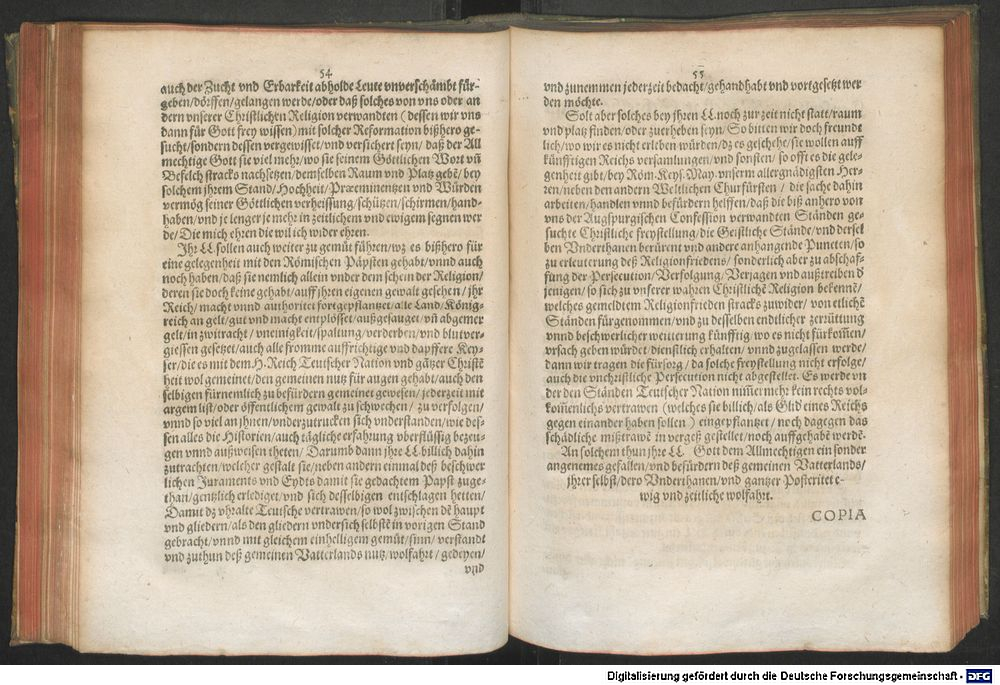 54
auch der Zucht vnd Erbarkeit abholde Leute vnverschämbt für-
geben/dörffen/gelangen werde/oder daß solches von vns oder an
dern vnserer Christlichen Religion verwandten (dessen wir vns
dann für Gott frey wissen) mit solcher Reformation bißhero ge-
sucht/sondern dessen vergewisset/vnd versichert seyn/ daß der All
mechtige Gott sie viel mehr/wo sie seinem Göttlichen Wort vñ
Befelch stracks nachsetzen/demselben Raum vnd Platz gebẽ/bey
solchem jhrem Stand/Hochheit/Præeminentzen vnd Würden
vermög seiner Göttlichen verheissung/schützen/schirmen/hand-
haben/vnd je lenger je mehr in zeitlichem vnd ewigem segnen wer
de/Die mich ehren die wil ich wider ehren.
Ihr LL sollen auch weiter zu gemüt führen/wz es bißhero für
eine gelegenheit mit den Römischen Päpsten gehabt/vnnd auch
noch haben/daß sie nemlich allein vnder dem schein der Religion/
deren sie doch keine gehabt/auff jhren eigenen gewalt gesehen/jhr
Reich/macht vnnd authoritet fortgepflantzet/alle Land/König-
reich an gelt/gut vnd macht entplösset/außgesauget vñ abgemer
gelt/in zwitracht/vneinigkeit/spaltung/verderben/vnd blutver-
giessen gesetzet/auch alle fromme auffrichtige vnd dapffere Key-
ser/die es mit dem H. Reich Teutscher Nation vnd gãtzer Christẽ
heit wol gemeinet/den gemeinen nutz für augen gehabt/auch den
selbigen fürnemlich zu befürdern gemeinet gewesen/jederzeit mit
argem list/oder öffentlichem gewalt zu schwechen/ zu verfolgen/
vnnd so viel an jhnen/vnderzutrucken sich vnderstanden/wie des-
sen alles die Historien/auch tägliche erfahrung vberflüssig bezeu-
gen vnnd außweisen theten/ Darumb dann jhre LL billich dahin
zutrachten/welcher gestalt sie/neben andern einmal deß beschwer
lichen Juraments vnd Eydts damit sie gedachtem Papst zuge-
than/gentzlich erlediget/vnd sich desselbigen entschlagen hetten/
Damit dz vhralte Teutsche vertrawen/so wol zwischen dẽ haupt
vnd gliedern/als den gliedern vndersich selbstẽ in vorigen Stand
gebracht/vnnd mit gleichem einhelligem gemüt/sinn/verstandt
vnd zuthun deß gemeinen Vatterlands nutz/wolfahrt/gedeyen/
vnd
55
vnd zunemmen jederzeit bedacht/gehandhabt vnd vortgesetzt wer
den möchte.
Solt aber solches bey jhren LL noch zur zeit nicht statt/raum
vnd platz finden/oder zuerheben seyn/So bitten wir doch freundt
lich/wo wir es nicht erleben würden/dz es geschehe/sie wollen auff
künfftigen Reichs versamlungen/vnd sonsten/so offt es die gele-
genheit gibt/bey Röm. Keys. May. vnserm allergnädigsten Her-
ren/neben den andern Weltlichen Churfürsten/ die sache dahin
arbeiten/handlen vnnd befürdern helffen/daß die biß anhero von
vns der Augspurgischen Confession verwandten Ständen ge-
suchte Christliche freystellung/die Geistliche Stände/vnd dersel
ben Vnderthanen berürent vnd andere anhangende Puncten/so
zu erleuterung deß Religionfriedens/ sonderlich aber zu abschaf-
fung der Persecution/Verfolgung/Verjagen vnd außtreiben d'
jenigen/so sich zu vnserer wahren Christlichẽ Religion bekennẽ/
welches gemeldtem Religionfrieden stracks zuwider/ von etlichẽ
Ständen fürgenommen/vnd zu desselben endtlicher zerrüttung
vnnd beschwerlicher weiterung künfftig/wo es nicht fürkom̃en/
vrsach geben würdet/dienstlich erhalten/ vnnd zugelassen werde/
dann wir tragen die fürsorg/da solche freystellung nicht erfolge/
auch die vnchristliche Persecution nicht abgestellet. Es werde vn
der den Ständen Teutscher Nation nim̃ermehr kein rechts vol-
kom̃enlichs vertrawen (welches sie billich/als Glid eines Reichs
gegen einander haben sollen) eingepflantzet/noch dagegen das
schädliche mißtrawẽ in vergeß gestellet/noch auffgehabẽ werdẽ.
An solchem thun jhre LL Gott dem Allmechtigen ein sonder
angenemes gefallen/vnd befürdern deß gemeinen Vatterlands/
jhrer selbst/dero Vnderthanen/vnd gantzer Posteritet e-
wig vnd zeitliche wolfahrt.
COPIA
Digitalisierung gefördert durch die Deutsche Forschungsgemeinschaft - DFG